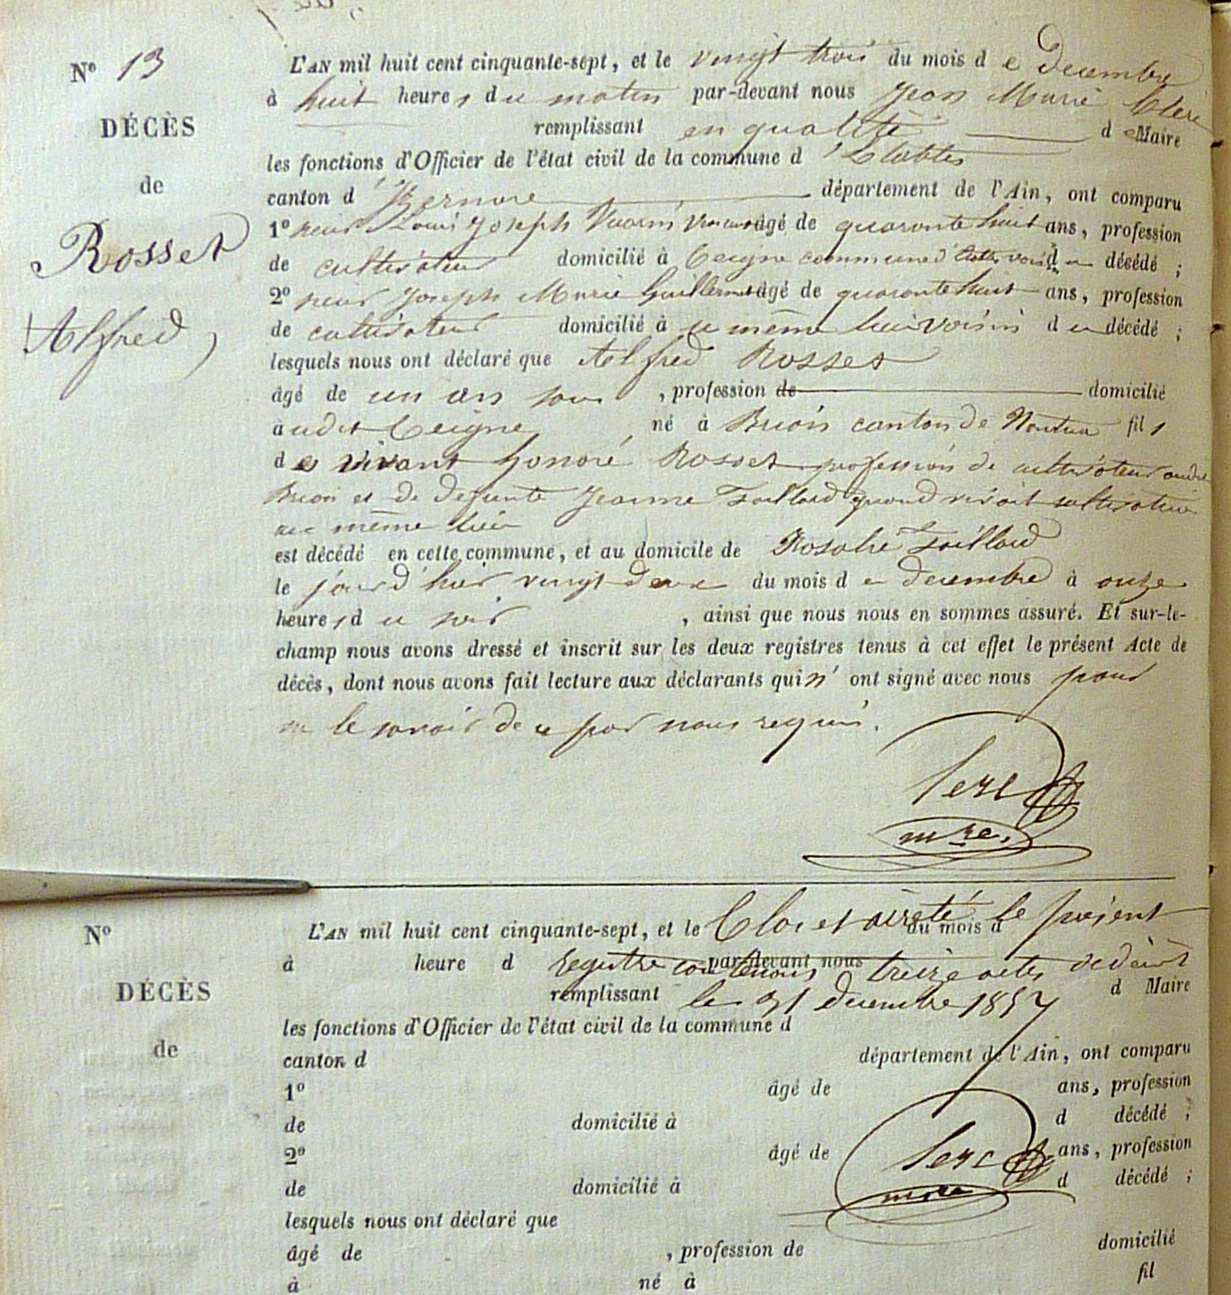 N° 13
DÉCÈS
de
Rosset
Alfred,
L'AN mil huit cent cinquante-sept, et le vingt trois du mois d e decembre
à huit heures du matin par-devant nous Jean Marie Clerc
remplissant en qualité de Maire
les fonctions d'Officier de l'état civil de la commune d'Etables
canton d département de l'Ain, ont comparu
1° sieur Louis Joseph âgé de quarante huit ans, profession
de cultivateur domicilié à Ceigne commune d'Etables voisin du décédé ;
2° sieur Joseph Marie Guillermet âgé de quarante huit ans, profession
de cultivateur domicilié à u même lieu voisin d u décédé ;
lesquels nous ont déclaré que Alfred Rosset
âgé de un an , profession de domicilié
à udit Ceigne né à Brion canton de Nantua fils
de vivant honoré Rosset profession de cultivateur audit
Brion et de defunte Jeanne Taillard quand vivait cultivatrice
au même lieu
est décédé en cette commune, et au domicile de Rosalie Taillard
le jour d'hier vingt deux du mois d e decembre à onze
heures du soir , ainsi que nous nous en sommes assuré. Et sur-le-
champ nous avons dressé et inscrit sur les deux registres tenus à cet effet le présent Acte de
décès, dont nous avons fait lecture aux déclarants qui n' ont signé avec nous pour
ne le savoir de ce par nous requis.
Clerc
mre.
N°
DÉCÈS
de
L'AN mil huit cent cinquante-sept, et le Clos et arreté le présent du mois d
à heure d registre contenant par-devant nous treize actes
remplissant le 31 decembre 1857 d Maire
les fonctions d'Officier de l'état civil de la commune d
canton d département de l'Ain, ont comparu
1° âgé de ans, profession
de domicilié à d décédé ;
2° âgé de Clerc ans, profession
de domicilié à mre d décédé ;
lesquels nous ont déclaré que
âgé de , profession de domicilié
à né à fil